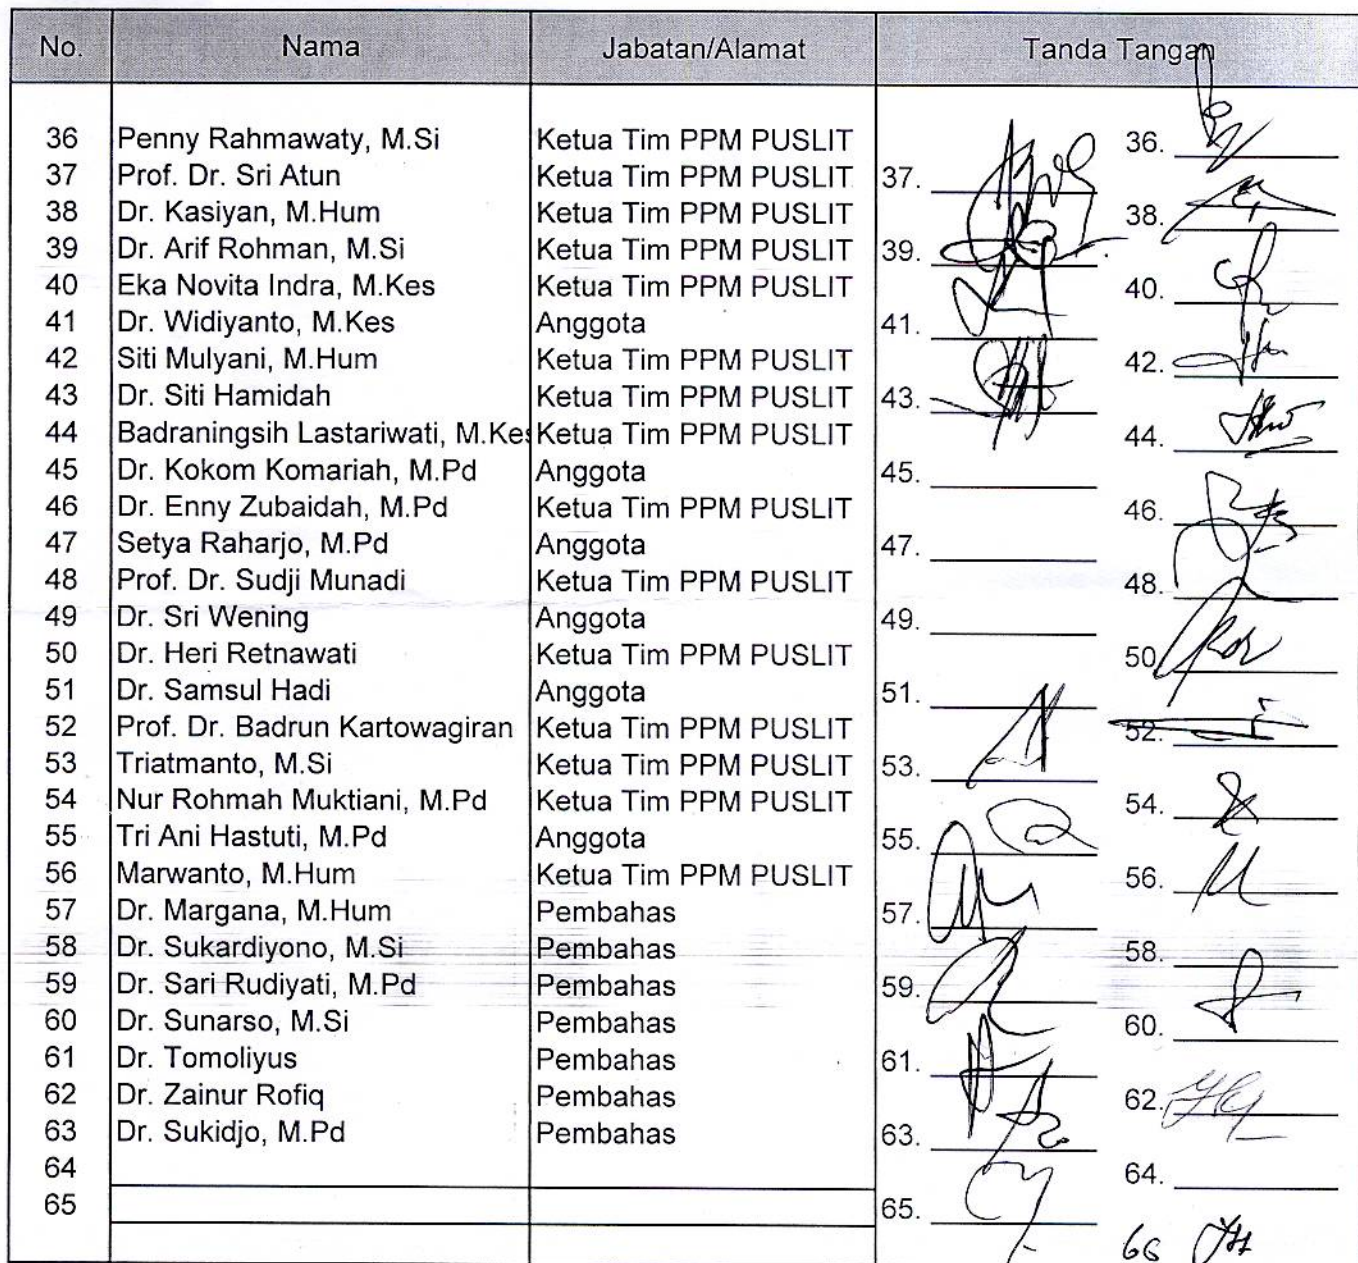 No. Nama Jabatan/Alamat Tanda Tangan
36 Penny Rahmawaty, M.Si Ketua Tim PPM PUSLIT 36.
37 Prof. Dr. Sri Atun Ketua Tim PPM PUSLIT 37.
38 Dr. Kasiyan, M.Hum Ketua Tim PPM PUSLIT 38.
39 Dr. Arif Rohman, M.Si Ketua Tim PPM PUSLIT 39.
40 Eka Novita Indra, M.Kes Ketua Tim PPM PUSLIT 40.
41 Dr. Widiyanto, M.Kes Anggota 41.
42 Siti Mulyani, M.Hum Ketua Tim PPM PUSLIT 42.
43 Dr. Siti Hamidah Ketua Tim PPM PUSLIT 43.
44 Badraningsih Lastariwati, M.Kes Ketua Tim PPM PUSLIT 44.
45 Dr. Kokom Komariah, M.Pd Anggota 45.
46 Dr. Enny Zubaidah, M.Pd Ketua Tim PPM PUSLIT 46.
47 Setya Raharjo, M.Pd Anggota 47.
48 Prof. Dr. Sudji Munadi Ketua Tim PPM PUSLIT 48.
49 Dr. Sri Wening Anggota 49.
50 Dr. Heri Retnawati Ketua Tim PPM PUSLIT 50
51 Dr. Samsul Hadi Anggota 51.
52 Prof. Dr. Badrun Kartowagiran Ketua Tim PPM PUSLIT 52.
53 Triatmanto, M.Si Ketua Tim PPM PUSLIT 53.
54 Nur Rohmah Muktiani, M.Pd Ketua Tim PPM PUSLIT 54.
55 Tri Ani Hastuti, M.Pd Anggota 55.
56 Marwanto, M.Hum Ketua Tim PPM PUSLIT 56.
57 Dr. Margana, M.Hum Pembahas 57.
58 Dr. Sukardiyono, M.Si Pembahas 58.
59 Dr. Sari Rudiyati, M.Pd Pembahas 59.
60 Dr. Sunarso, M.Si Pembahas 60.
61 Dr. Tomoliyus Pembahas 61.
62 Dr. Zainur Rofiq Pembahas 62.
63 Dr. Sukidjo, M.Pd Pembahas 63.
64 64.
65 65.
66